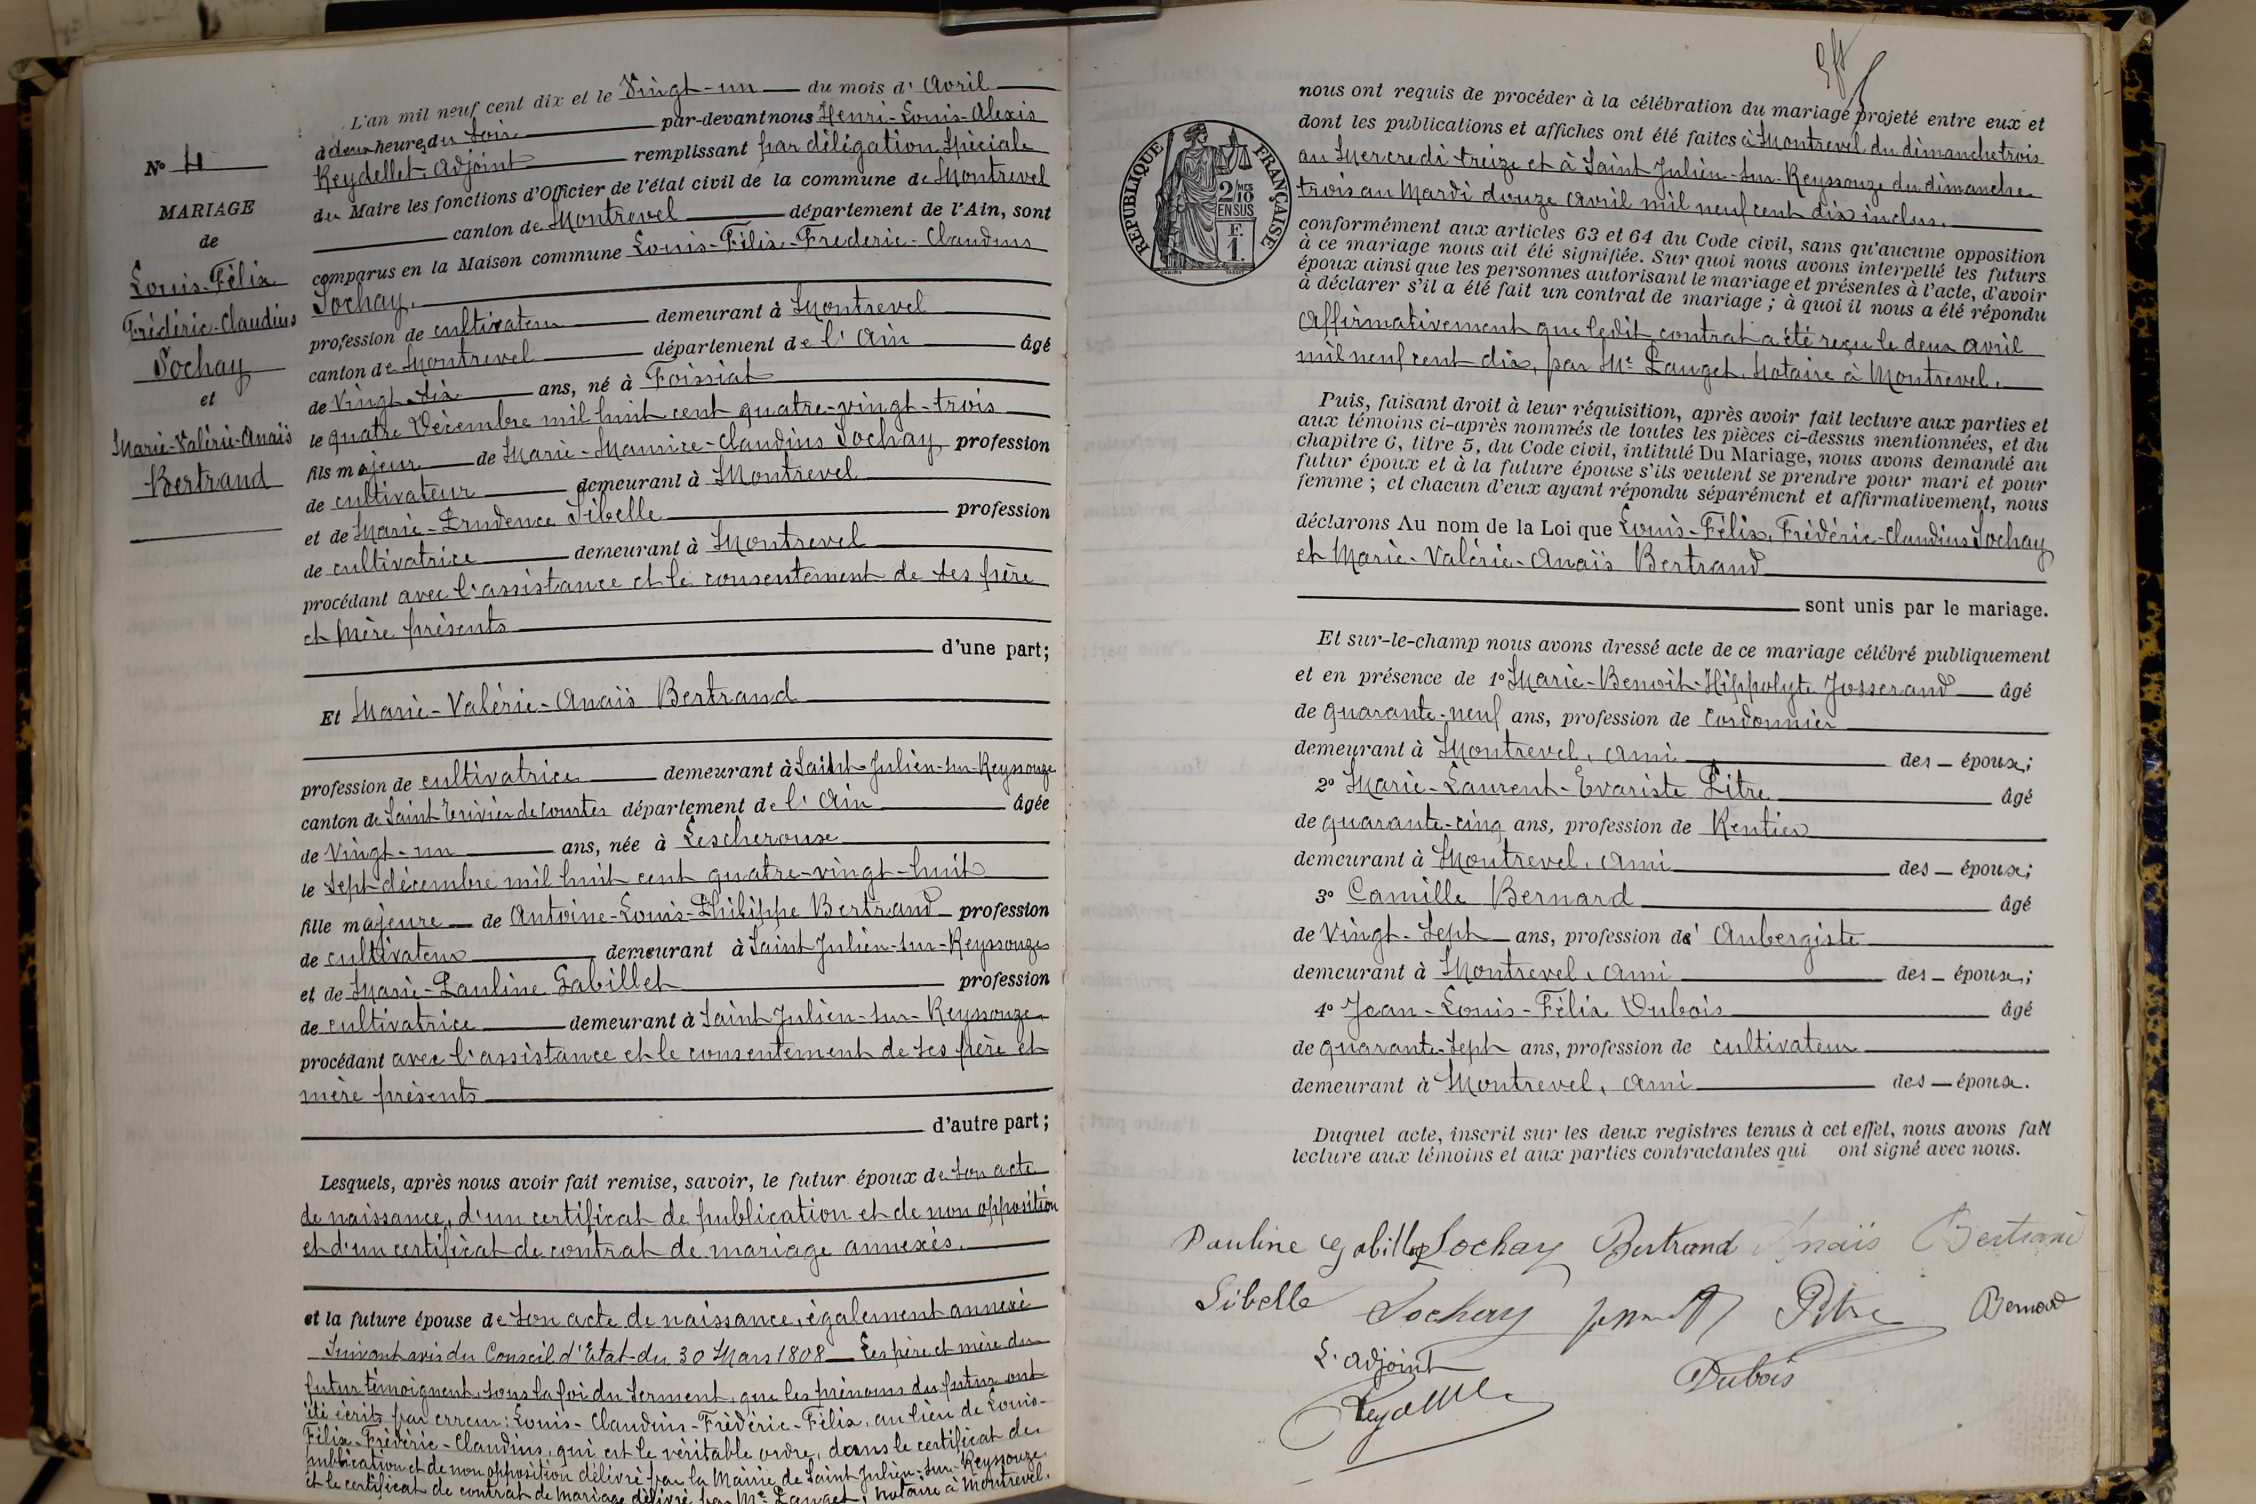 N° 4
MARIAGE
de
Louis-Félix
Frédéric-Claudius
Sochay
et
Marie-Valérie-Anaïs
Bertrand
L'an mil neuf cent dix et le Vingt-un du mois d' Avril
à deux heures du Soir par-devant nous Henri-Louis-Alexis
Reydellet, Adjoint remplissant par délégation Spéciale
du Maire les fonctions d'Officier de l'état civil de la commune de Montrevel
canton de Montrevel département de l'Ain, sont
comparus en la Maison commune Louis-Félix-Frederic-Claudius
Sochay.
profession de cultivateur demeurant à Montrevel
canton de Montrevel département de l'Ain âgé
de Vingt-six ans, né à Foissiat
le quatre Décembre mil huit cent quatre-vingt-trois
fils majeur de Marie-Maurice-Claudius Sochay profession
de cultivateur demeurant à Montrevel
et de Marie-Prudence Sibelle profession
de cultivatrice demeurant à Montrevel
procédant avec l'assistance et le consentement de ses père
et mère présents
d'une part;
Et Marie-Valérie-Anaïs Bertrand
profession de cultivatrice demeurant à Saint-Julien-sur-Reyssouze
canton de Saint Trivier de Courtes département de l'Ain âgée
de Vingt-un ans, née à Lescheroux
le Sept décembre mil huit cent quatre-vingt-huit
fille majeure de Antoine-Louis-Philippe Bertrand profession
de cultivateur demeurant à Saint Julien-sur-Reyssouze
et de Marie-Pauline Gabillet profession
de cultivatrice demeurant à Saint Julien-sur-Reyssouze
procédant avec l'assistance et le consentement de ses père et
mère présents
d'autre part;
Lesquels, après nous avoir fait remise, savoir, le futur époux de son acte
de naissance, d'un certificat de publication et de non opposition
et d'un certificat de contrat de mariage annexés.
et la future épouse de son acte de naissance, également annexé
Suivant avis du Conseil d'Etat du 30 Mars 1808 Les père et mère du
futur témoignent, sous la foi du serment, que les prénoms du futur ont
été écrits par erreur: Louis-Claudius-Frédéric-Félix, au lieu de Louis-
Félix-Frédéric-Claudius, qui est le véritable ordre, dans le certificat de
publication et de non opposition délivré par la Mairie de Saint Julien-sur-Reyssouze
et le certificat de contrat de mariage délivré par Me Pauget, notaire à Montrevel.
REPUBLIQUE FRANÇAISE
2/10 MES
EN SUS
F.
1.
nous ont requis de procéder à la célébration du mariage projeté entre eux et
dont les publications et affiches ont été faites à Montrevel du dimanche trois
au Mercredi treize et à Saint Julien-sur-Reyssouze du dimanche
trois au Mardi douze Avril mil neuf cent dix inclus.
conformément aux articles 63 et 64 du Code civil, sans qu'aucune opposition
à ce mariage nous ait été signifiée. Sur quoi nous avons interpellé les futurs
époux ainsi que les personnes autorisant le mariage et présentes à l'acte, d'avoir
à déclarer s'il a été fait un contrat de mariage; à quoi il nous a été répondu
Affirmativement que ledit contrat a été reçu le deux avril
mil neuf cent dix, par Me Pauget, Notaire à Montrevel.
Puis, faisant droit à leur réquisition, après avoir fait lecture aux parties et
aux témoins ci-après nommés de toutes les pièces ci-dessus mentionnées, et du
chapitre 6, titre 5, du Code civil, intitulé Du Mariage, nous avons demandé au
futur époux et à la future épouse s'ils veulent se prendre pour mari et pour
femme; et chacun d'eux ayant répondu séparément et affirmativement, nous
déclarons Au nom de la Loi que Louis-Félix, Frédéric-Claudius Sochay
et Marie-Valérie-Anaïs Bertrand
sont unis par le mariage.
Et sur-le-champ nous avons dressé acte de ce mariage célébré publiquement
et en présence de 1° Marie-Benoit-Hippolyte Josserand âgé
de quarante-neuf ans, profession de cordonnier
demeurant à Montrevel, ami des époux;
2° Marie-Laurent-Evariste Pitre âgé
de quarante-cinq ans, profession de Rentier
demeurant à Montrevel, ami des époux;
3° Camille Bernard âgé
de Vingt-Sept ans, profession d' Aubergiste
demeurant à Montrevel, ami des époux;
4° Jean-Louis-Félix Dubois âgé
de quarante-sept ans, profession de cultivateur
demeurant à Montrevel, ami des époux.
Duquel acte, inscrit sur les deux registres tenus à cet effet, nous avons fait
lecture aux témoins et aux parties contractantes qui ont signé avec nous.
Pauline Gabillet Sochay Bertrand Anaïs Bertrand
Sibelle Sochay Pitre Bernard
L'Adjoint Dubois